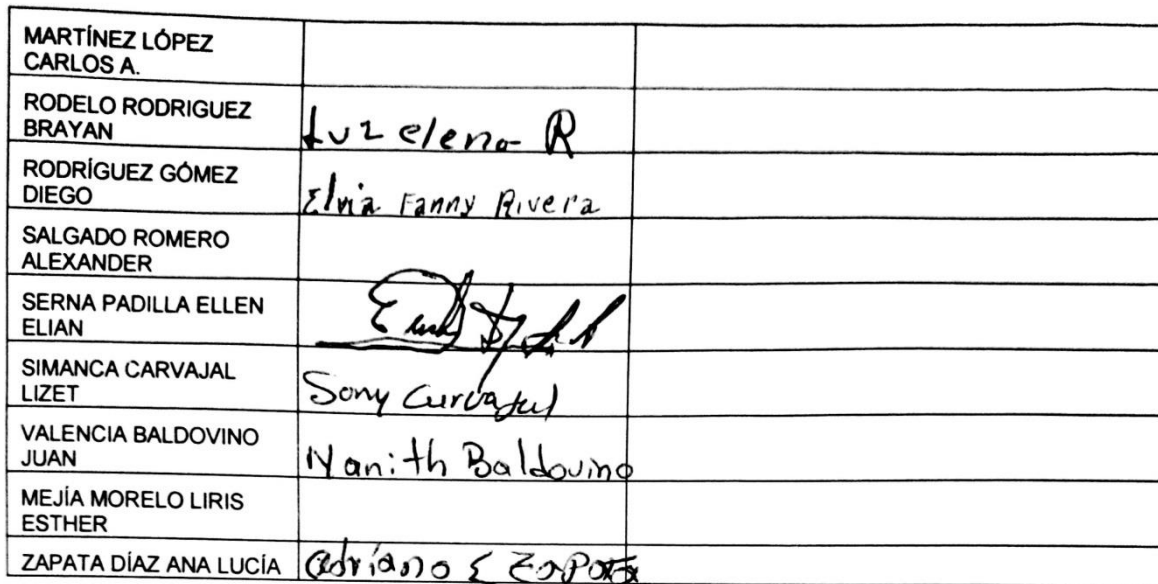 MARTÍNEZ LÓPEZ
CARLOS A.
RODELO RODRIGUEZ
BRAYAN
Luz elena R
RODRÍGUEZ GÓMEZ
DIEGO
Elvia Fanny Rivera
SALGADO ROMERO
ALEXANDER
SERNA PADILLA ELLEN
ELIAN
SIMANCA CARVAJAL
LIZET
Sony Carvajal
VALENCIA BALDOVINO
JUAN
Nanith Baldovino
MEJÍA MORELO LIRIS
ESTHER
ZAPATA DÍAZ ANA LUCÍA
adriano E Zapata